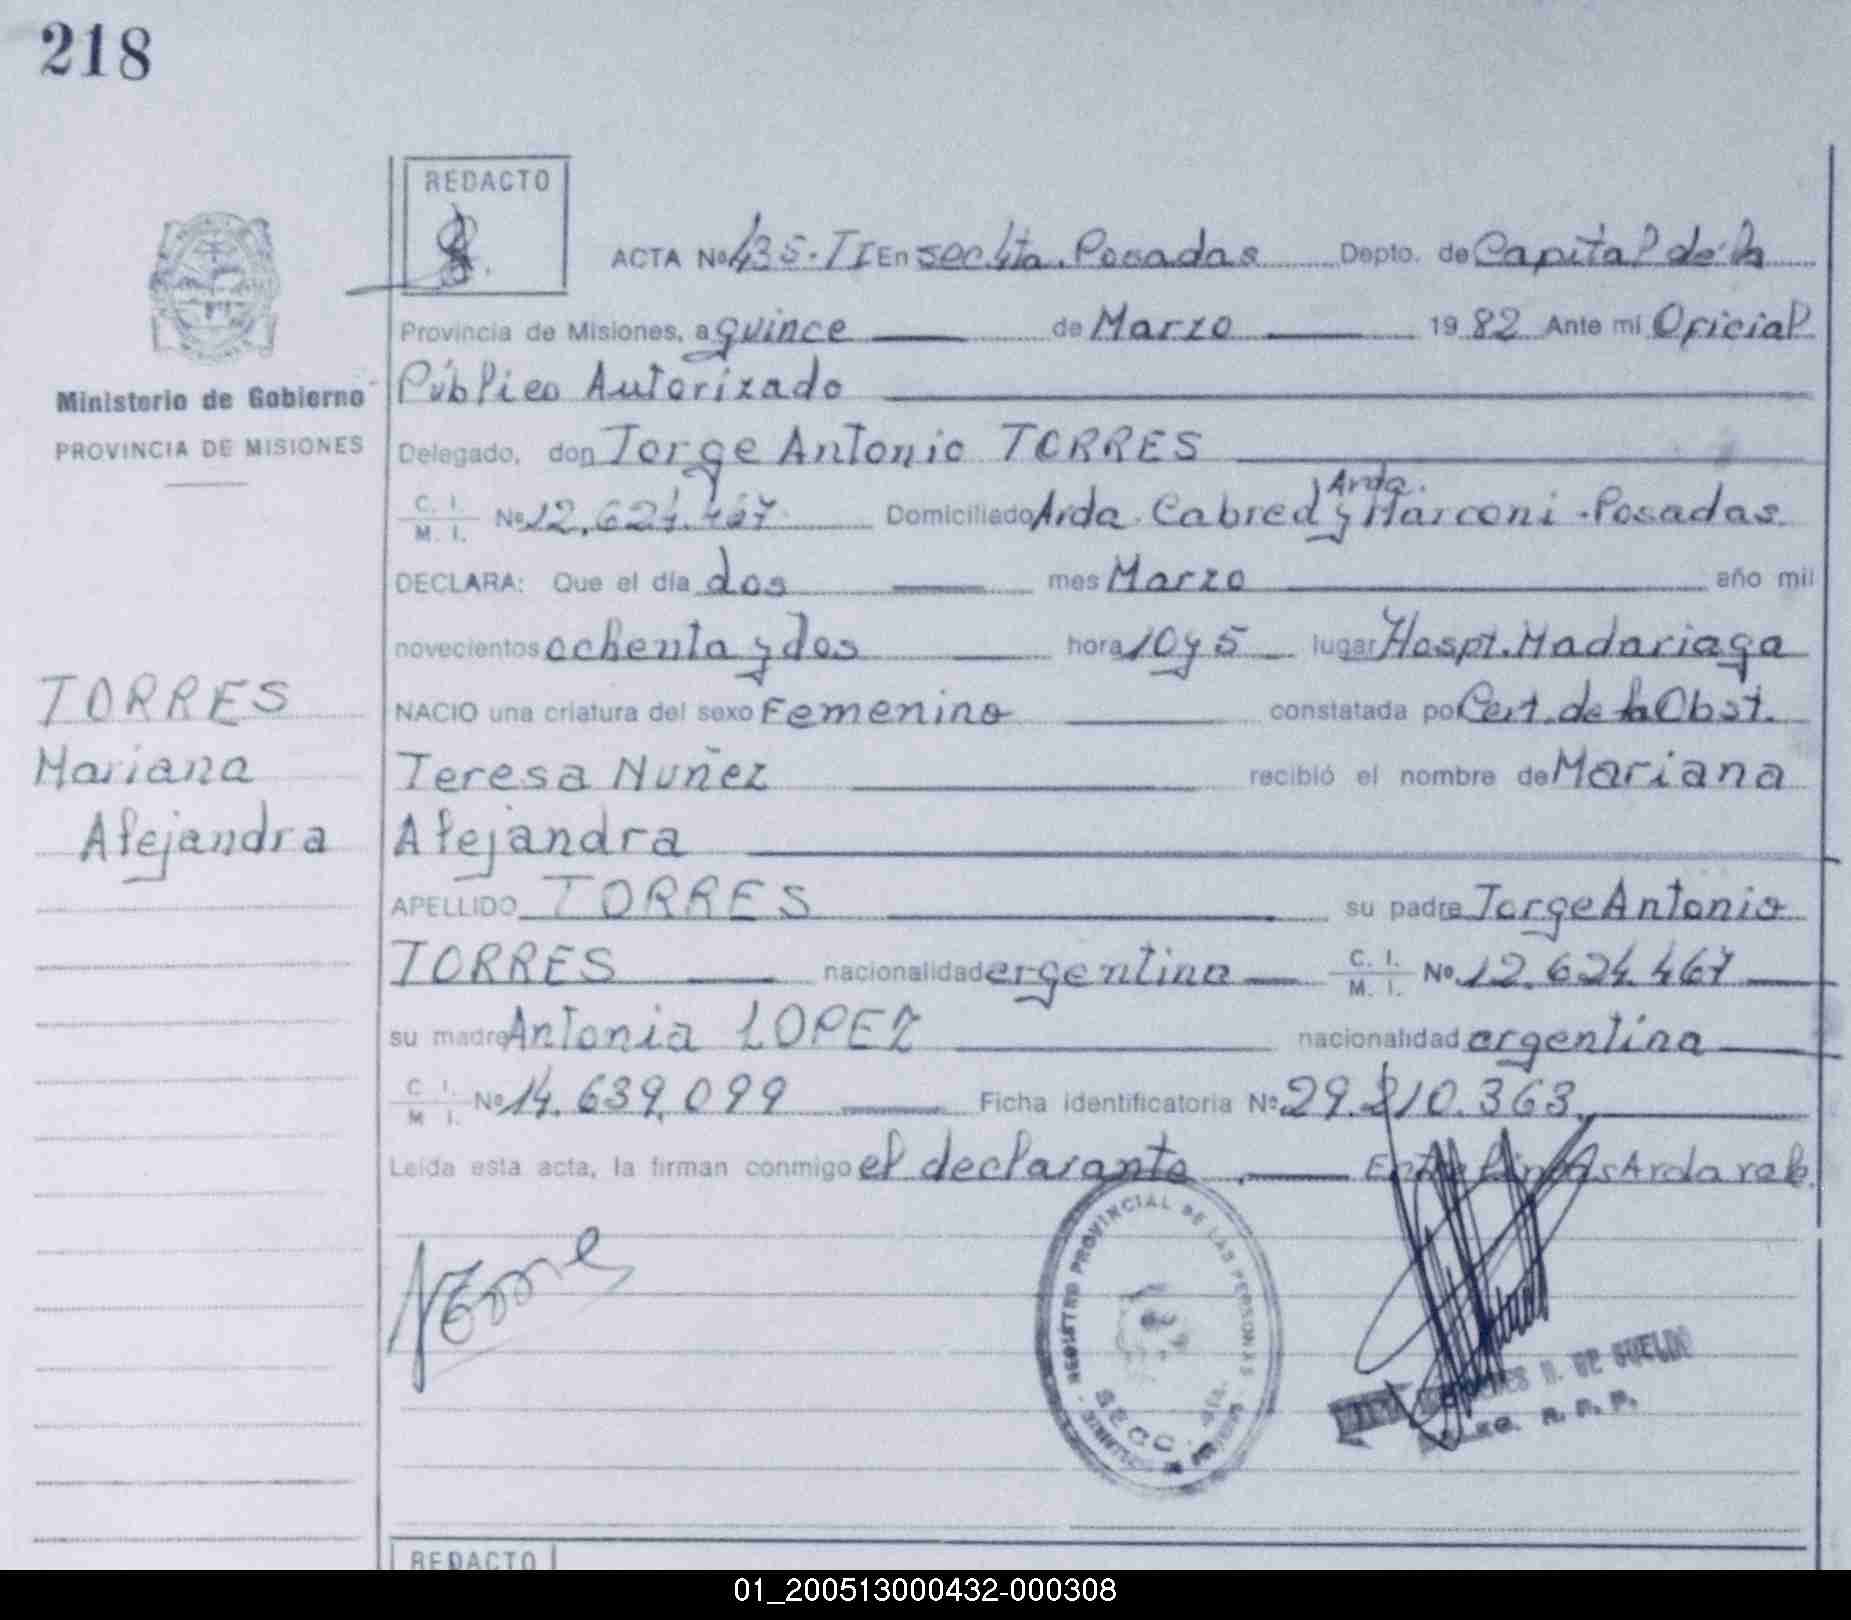 218
REDACTO
ACTA Nº 435-II En secc 4ta. Posadas Depto. de Capital de la
Provincia de Misiones, a quince de Marzo 1982 Ante mi Oficial
Ministerio de Gobierno
Público Autorizado
PROVINCIA DE MISIONES
Delegado, don Jorge Antonio TORRES
Arda.
C. I. M. I. Nº 12.624.467 Domiciliado Arda. Cabred y Marconi - Posadas.
DECLARA: Que el día dos mes Marzo año mil
novecientos ochenta y dos hora 10 y 5 lugar Hospt. Madariaga
TORRES
NACIO una criatura del sexo Femenino constatada por Cert. de la Obst.
Mariana
Teresa Nuñez recibió el nombre de Mariana
Alejandra
Alejandra
APELLIDO TORRES su padre Jorge Antonio
TORRES nacionalidad argentina C. I. M. I. Nº 12.624.467
su madre Antonia LOPEZ nacionalidad argentina
C. I. M. I. Nº 14.639.099 Ficha identificatoria Nº 29.210.363,
Leída esta acta, la firman conmigo el declarante, Entre lineas Arda vale.
REGISTRO PROVINCIAL DE LAS PERSONAS
SECC. 4ta.
DE SUELDO
R. P. P.
REDACTO
01_200513000432-000308